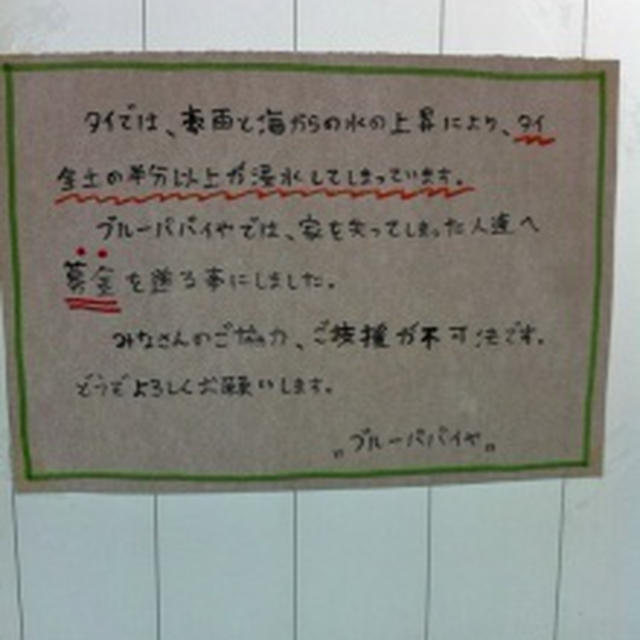 タイでは、豪雨と海からの水の上昇により、タイ
全土の半分以上が浸水してしまっています。
ブルーパパイヤでは、家を失ってしまった人達へ
募金を送る事にしました。
みなさんのご協力、ご支援が不可決です。
どうぞよろしくお願いします。
"ブルーパパイヤ"